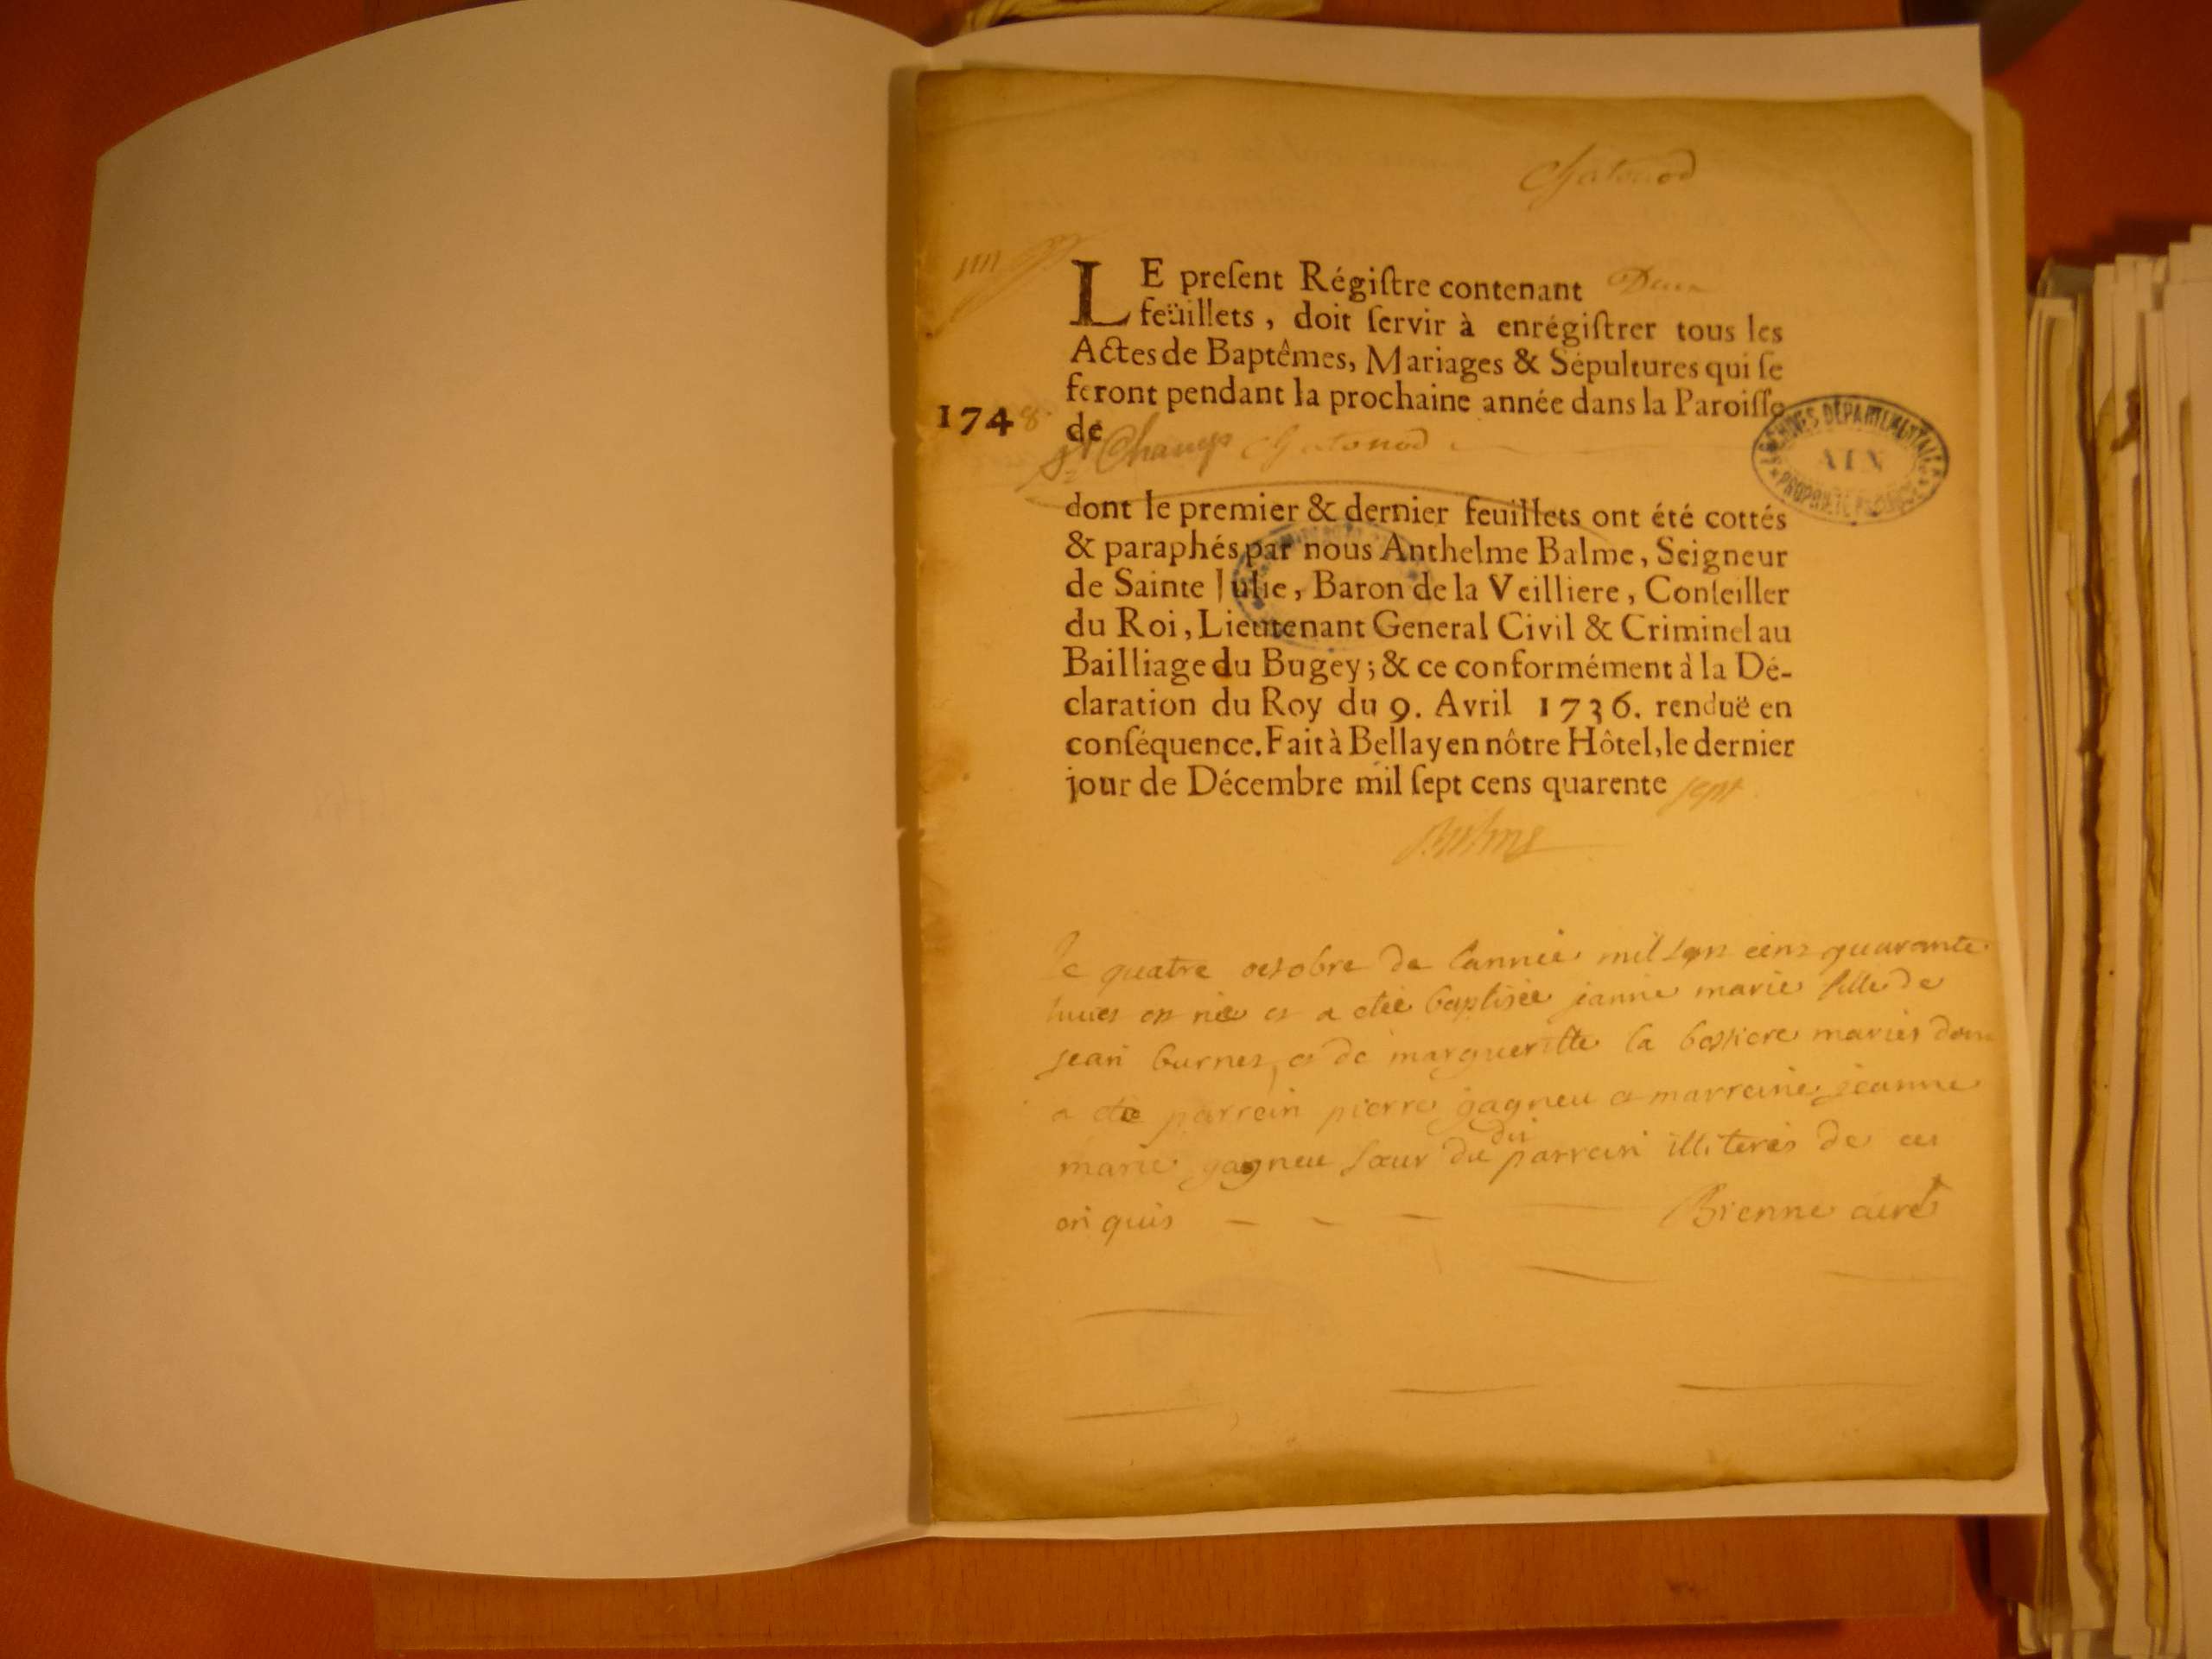 Chatonod
LE preſent Régiſtre contenant Deux
feüillets, doit ſervir à enrégiſtrer tous les
Actes de Baptêmes, Mariages & Sépultures qui ſe
feront pendant la prochaine année dans la Paroiſſe
1748. de
St Champ Chatonod
ARCHIVES DÉPARTEMENTALES
AIN
PROPRIÉTÉ PUBLIQUE
dont le premier & dernier feuillets ont été cottés
& paraphés par nous Anthelme Balme, Seigneur
de Sainte Julie, Baron de la Veilliere, Conſeiller
du Roi, Lieutenant General Civil & Criminel au
Bailliage du Bugey; & ce conformément à la Dé-
claration du Roy du 9. Avril 1736. renduë en
conſéquence. Fait à Bellay en nôtre Hôtel, le dernier
jour de Décembre mil ſept cens quarente sept
Balme
Le quatre octobre de l'annéé mil sept cens quarante
huict est née et a etéé baptisée janne marie fille de
jean burnet, et de margueritte la bossiere mariés dont
a eté parrein pierre gagneu et marreine jeanne
marie gagneu sœur du dit parrein illiterés de ce
enquis Brenne curé